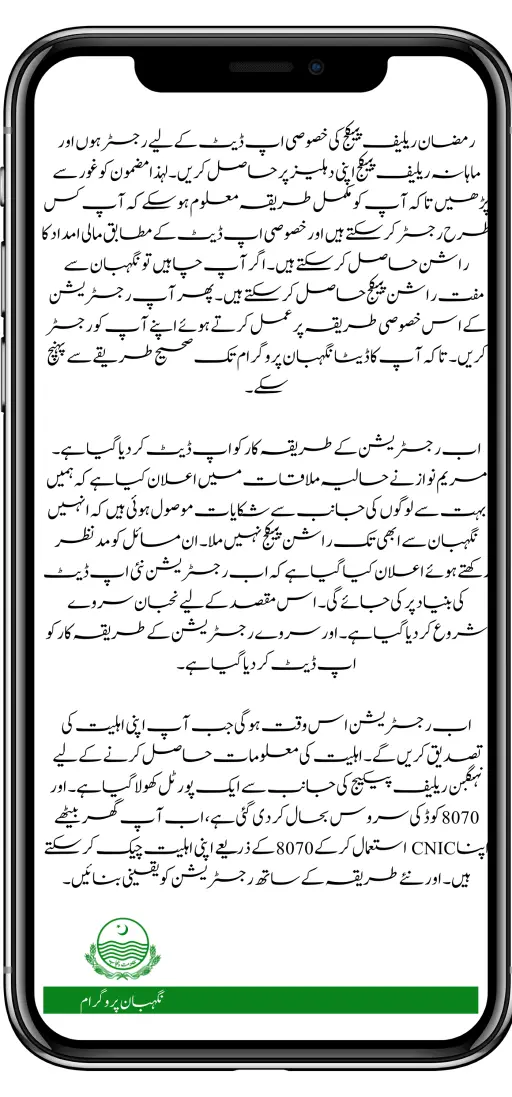 رمضان ریلیف پیکج کی خصوصی اپ ڈیٹ کے لیے رجسٹر ہوں اور
ماہانہ ریلیف پیکج اپنی دہلیز پر حاصل کریں۔ لہذا مضمون کو غور سے
پڑھیں تاکہ آپ کو مکمل طریقہ معلوم ہو سکے کہ آپ کس
طرح رجسٹر کر سکتے ہیں اور خصوصی اپ ڈیٹ کے مطابق مالی امداد کا
راشن حاصل کر سکتے ہیں۔ اگر آپ چاہیں تو نگہبان سے
مفت راشن پیکج حاصل کر سکتے ہیں۔ پھر آپ رجسٹریشن
کے اس خصوصی طریقہ پر عمل کرتے ہوئے اپنے آپ کو رجسٹر
کریں۔ تاکہ آپ کا ڈیٹا نگہبان پروگرام تک صحیح طریقے سے پہنچ
سکے۔
اب رجسٹریشن کے طریقہ کار کو اپ ڈیٹ کر دیا گیا ہے۔
مریم نواز نے حالیہ ملاقات میں اعلان کیا ہے کہ ہمیں
بہت سے لوگوں کی جانب سے شکایات موصول ہوئی ہیں کہ انہیں
نگہبان سے ابھی تک راشن پیکج نہیں ملا۔ ان مسائل کو مدنظر
رکھتے ہوئے اعلان کیا گیا ہے کہ اب رجسٹریشن نئی اپ ڈیٹ
کی بنیاد پر کی جائے گی۔ اس مقصد کے لیے نحبان سروے
شروع کر دیا گیا ہے۔ اور سروے رجسٹریشن کے طریقہ کار کو
اپ ڈیٹ کر دیا گیا ہے۔
اب رجسٹریشن اس وقت ہو گی جب آپ اپنی اہلیت کی
تصدیق کریں گے۔ اہلیت کی معلومات حاصل کرنے کے لیے
نہگبن ریلیف پیکیج کی جانب سے ایک پورٹل کھولا گیا ہے۔ اور
8070 کوڈ کی سروس بحال کر دی گئی ہے، اب آپ گھر بیٹھے
اپنا CNIC استعمال کر کے 8070 کے ذریعے اپنی اہلیت چیک کر سکتے
ہیں۔ اور نئے طریقہ کے ساتھ رجسٹریشن کو یقینی بنائیں۔
نگہبان پروگرام